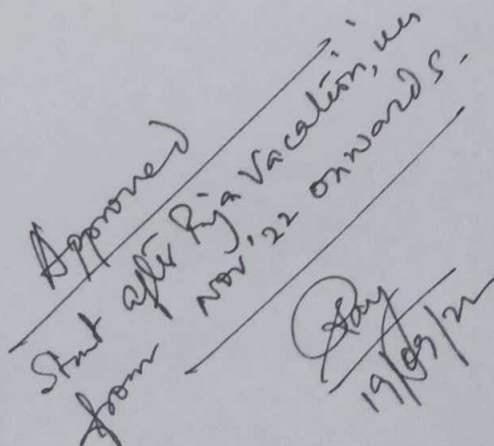 Approved
Start after Puja Vacation, in
from Nov'22 onwards.
19/09/22